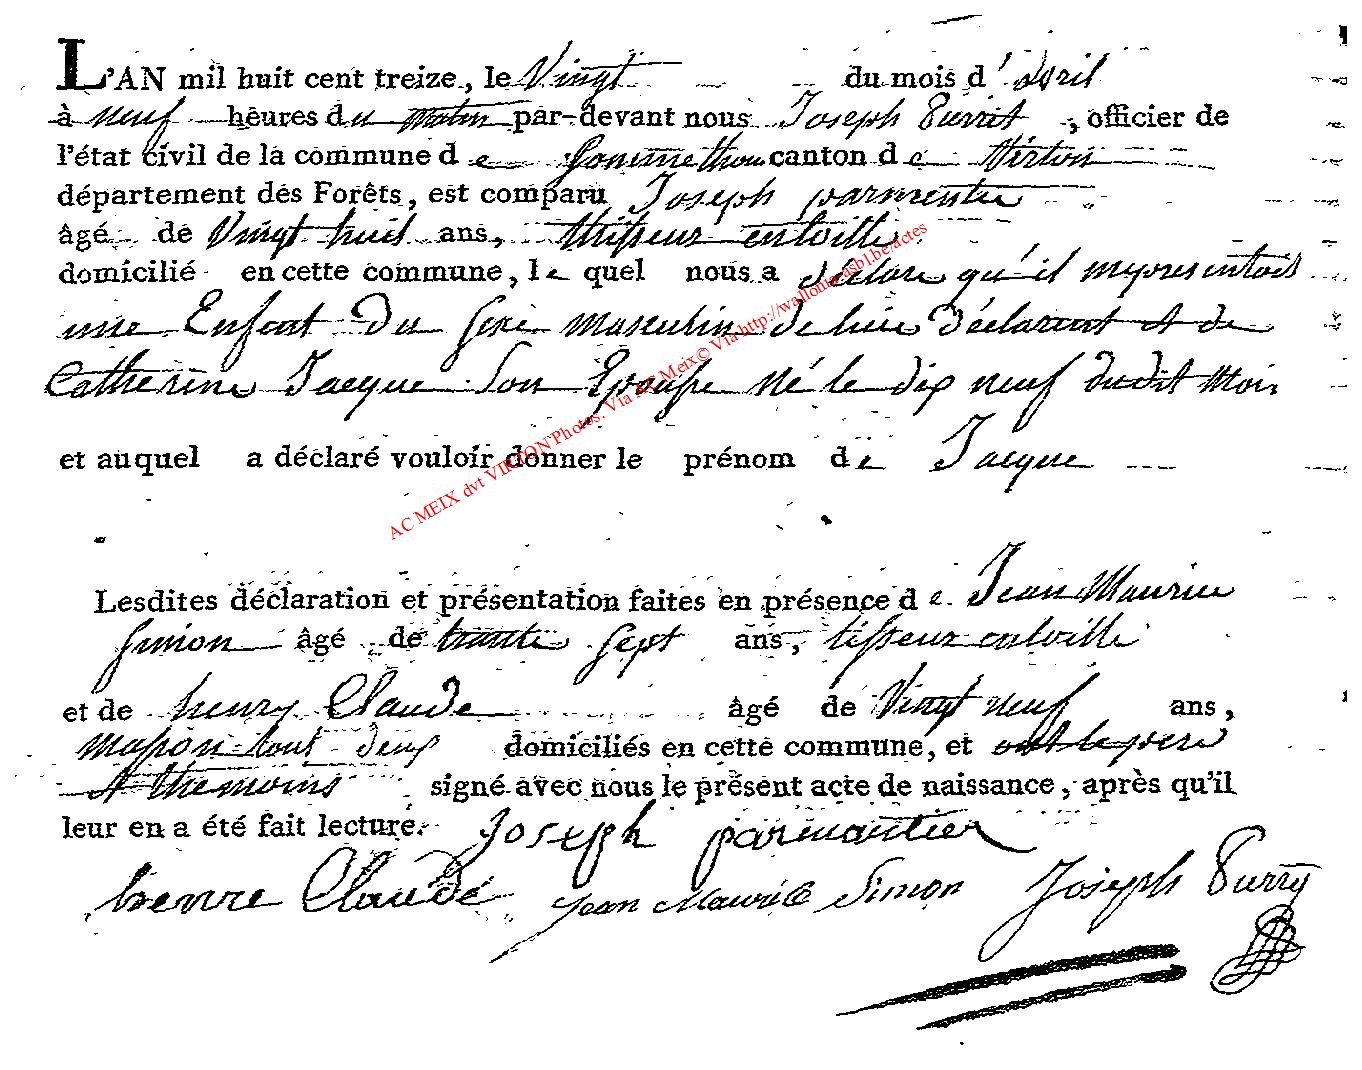 L'AN mil huit cent treize, le Vingt du mois d'avril
à neuf heures du matin par-devant nous Joseph Purrit, officier de
l'état civil de la commune de Sommethon canton de Virton
département des Forêts, est comparu Joseph parmentie
âgé de Vingt huit ans, thisseur entoille
domicilié en cette commune, le quel nous a déclare qu'il mypresintois
une Enfant Du sexe masculin de luie déclarant et de
Catherine Jacque Son Epouse né le dix neuf dudit mois
et auquel a déclaré vouloir donner le prénom de Jacque
Lesdites déclaration et présentation faites en présence de Jean Maurice
simon âgé de trante sept ans, tisseur entoille
et de henry Claude âgé de Vingt neuf ans,
masson tout deux domiciliés en cette commune, et ont le pere
et themoins signé avec nous le présent acte de naissance, après qu'il
leur en a été fait lecture. Joseph parmantier
henre Claude Jean Maurice Simon Joseph Purry
AC MEIX dvt VIRTON Photos. Via AC Meix© Via http://wallonia.asbl.be/actes